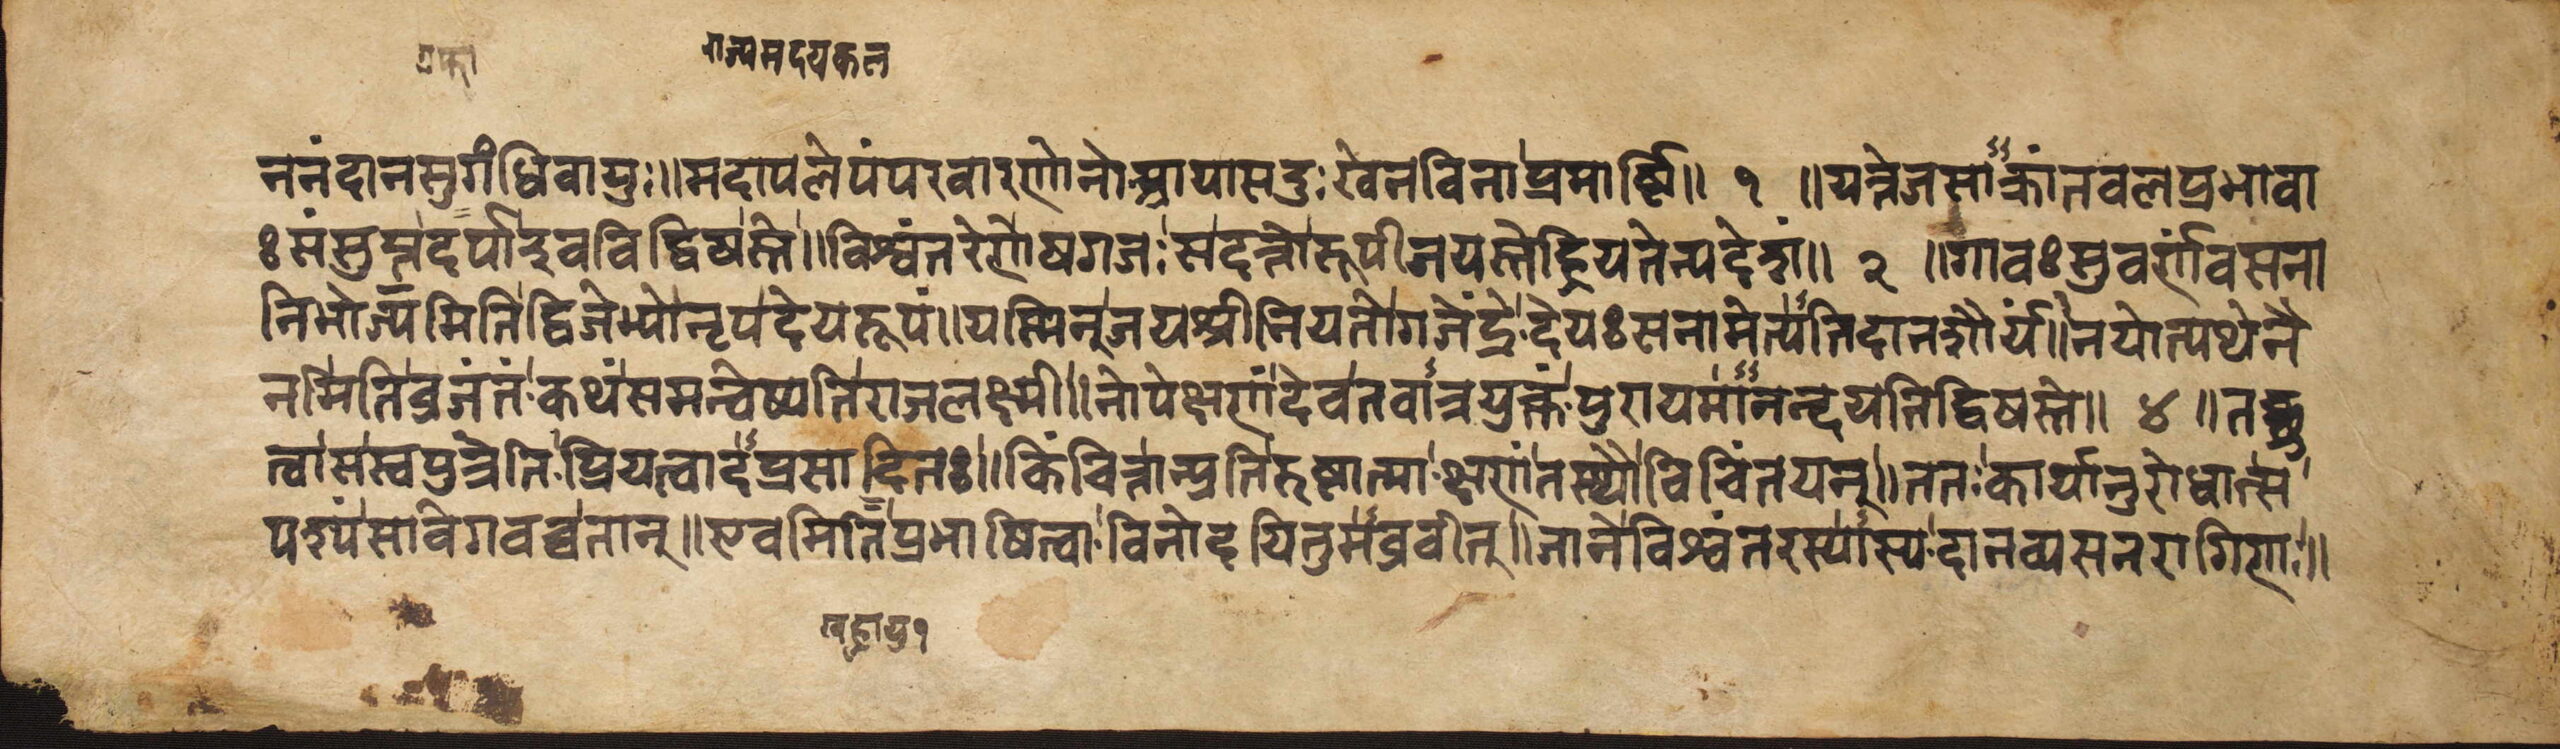 राज्यमदयकल
ननंदानसुगंधिवायुः॥मदापलेपंपरवारणानांआयासदुःखेनविनाप्रमार्ष्टि॥ १ ॥यत्तेजसाक्रांतबलप्रभावा
ःसंसुप्तदर्पाइवविद्विषस्ते॥विश्वंतरेणैषगजःसदत्तोरूपीजयस्तेह्रियतेन्यदेशं॥ २ ॥गावःसुवर्णंवसना
निभोज्यमितिद्विजेभ्योनृपदेयरूपं॥यस्मिन्जयश्रीर्नियतागजेंद्रेदेयःसनामेत्यतिदानशौर्यं॥नयोत्पथेनै
नमितिव्रजंतंकथंसमन्वेष्यतिराजलक्ष्मी॥नोपेक्षणंदेवतवात्रयुक्तंपुरायमानन्दयतिद्विषस्ते॥ ४ ॥तच्छ्रु
त्वासस्वपुत्रेतिप्रियत्वादप्रसादितः॥किंचित्तान्प्रतिरुष्टात्माक्षणंतस्थौविचिंतयन्॥ततःकार्यानुरोधात्स
पश्यंसावेगवच्चतान्॥एवमितिप्रभाषित्वाविनोदयितुमब्रवीत्॥जानेविश्वंतरस्यास्यदानव्यसनरागिणः॥